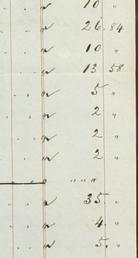 " 10 "
" 26.84
" 10 "
" 13 58
" 5 "
" 2 "
" 2 "
" 2 "
" " " "
" 35 "
" 4 "
" 5 "